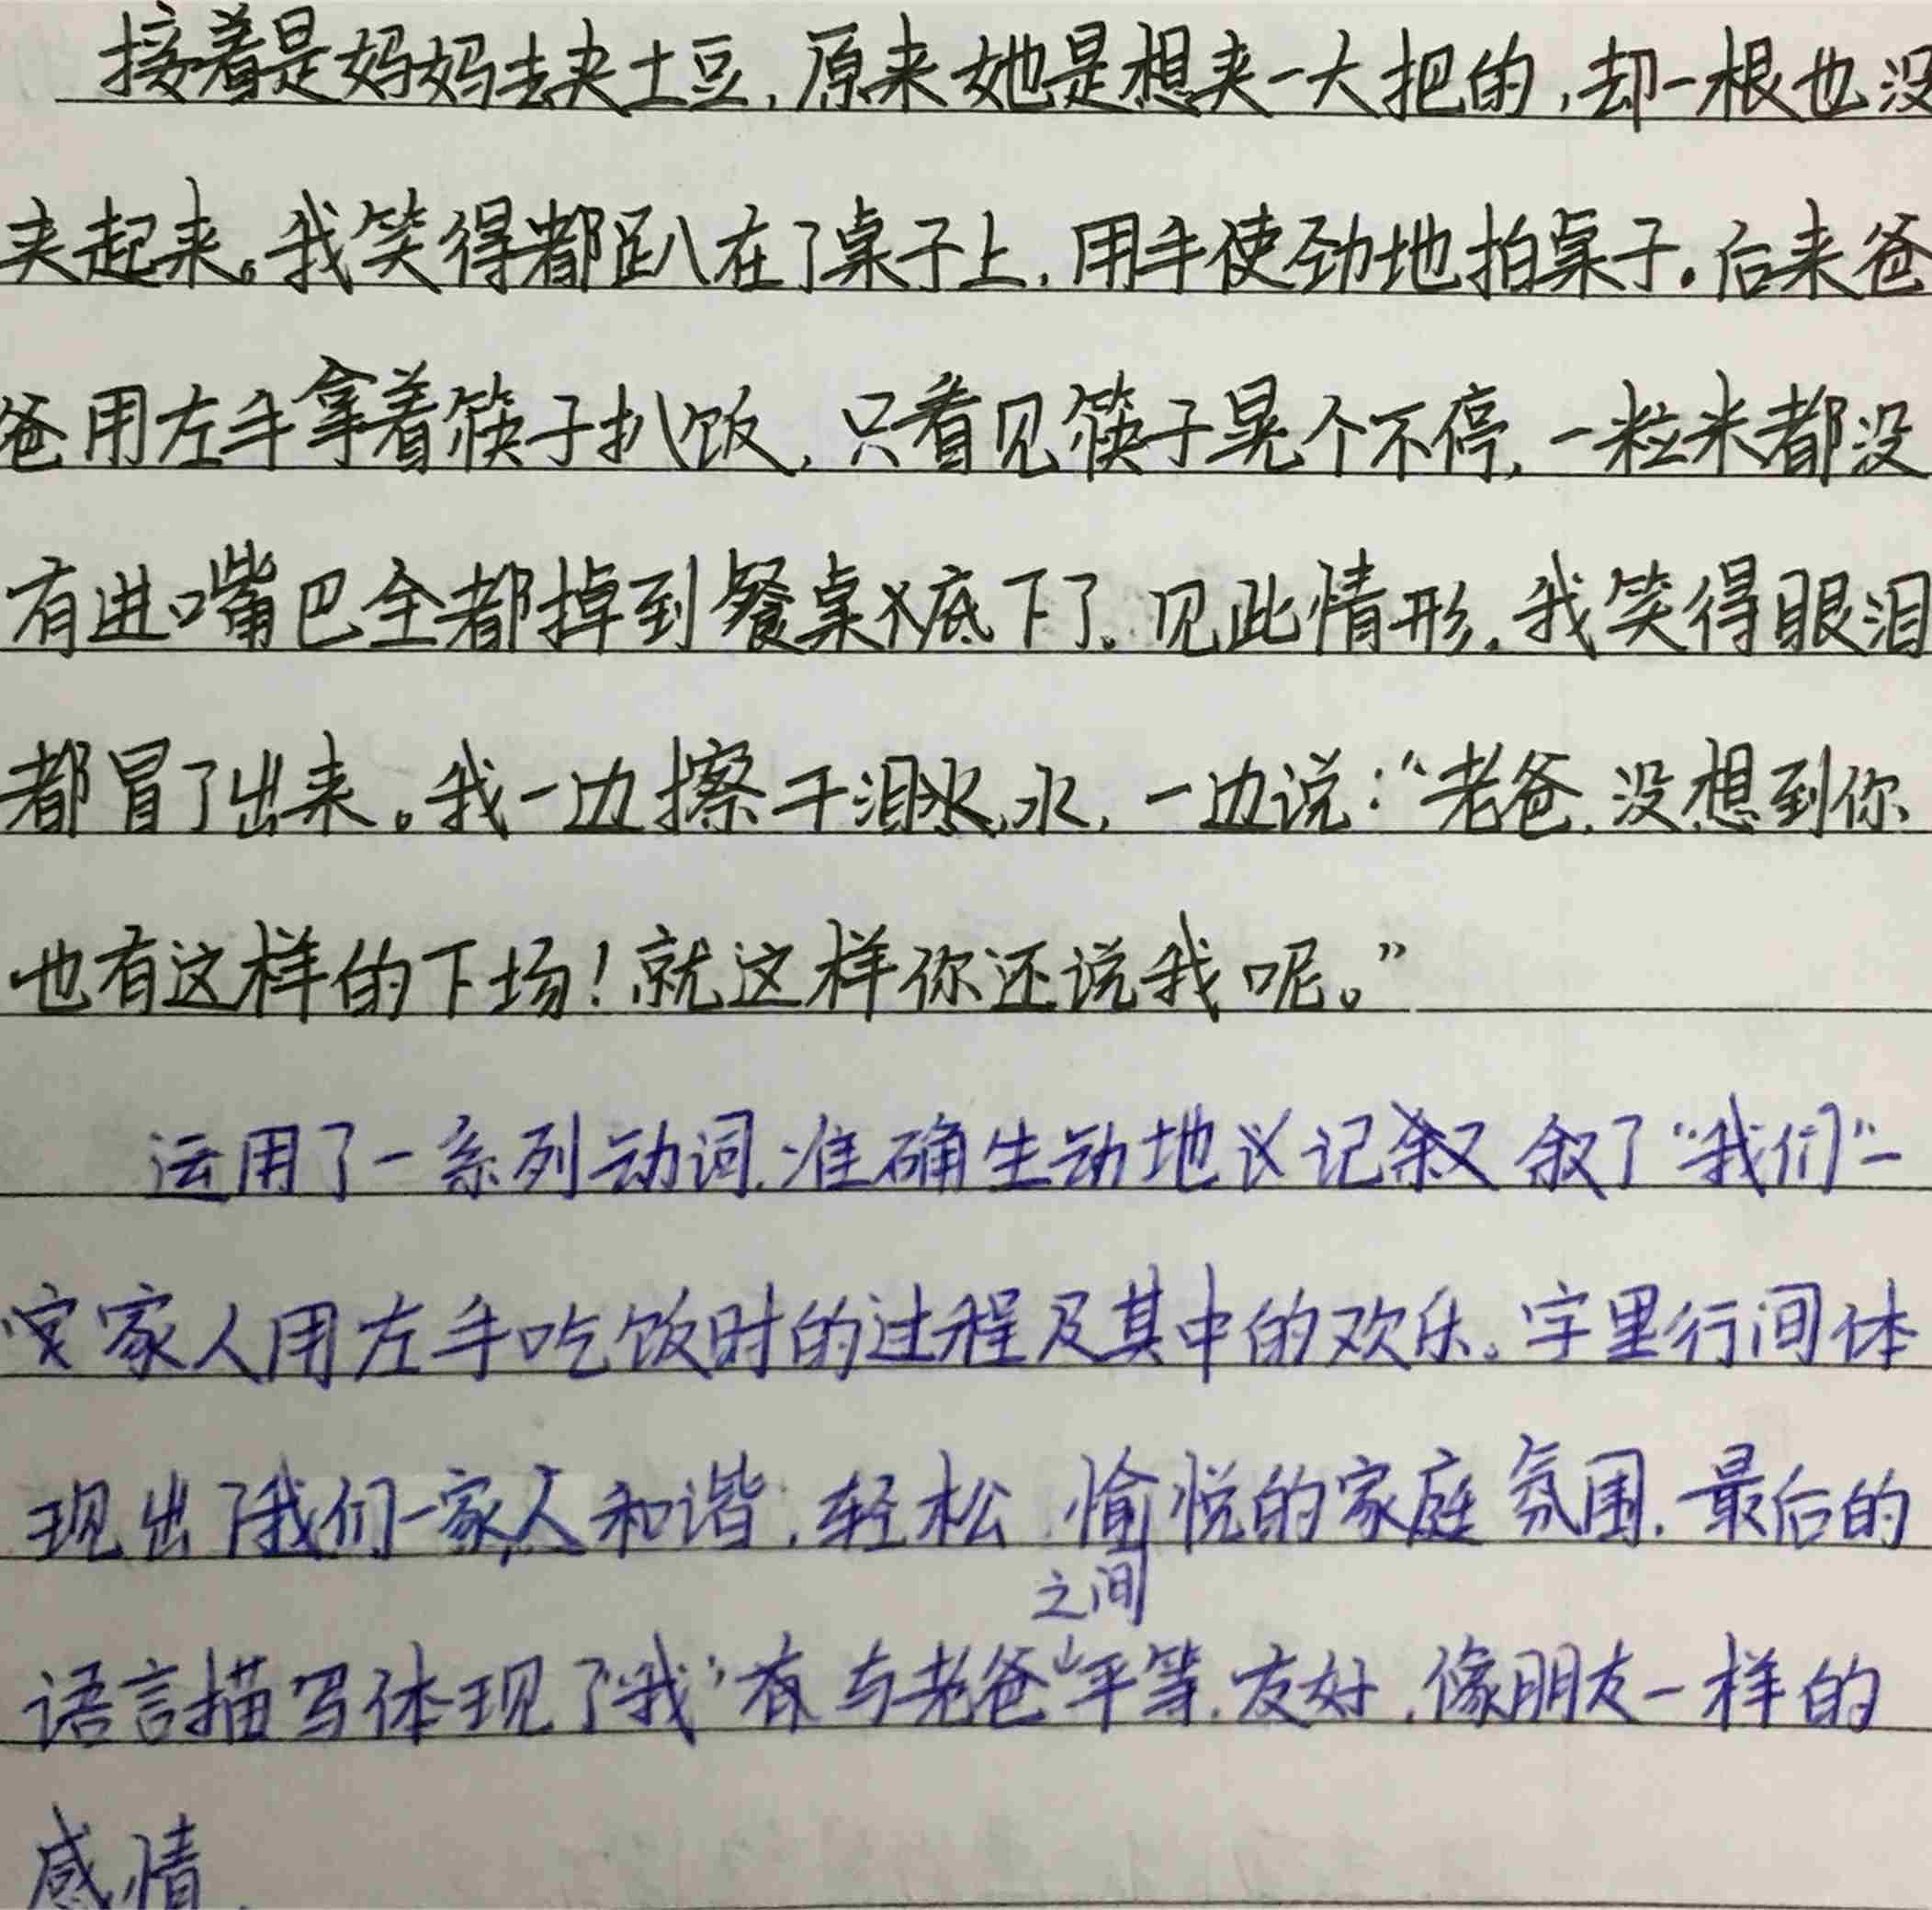 接着是妈妈去夹土豆,原来她是想夹一大把的,却一根也没
夹起来。我笑得都趴在了桌子上,用手使劲地拍桌子。后来爸
爸用左手拿着筷子扒饭,只看见筷子晃个不停,一粒米都没
有进嘴巴全都掉到餐桌底下了。见此情形,我笑得眼泪
都冒了出来。我一边擦干泪水,一边说:“老爸,没想到你
也有这样的下场!就这样你还说我呢。”
运用了一系列动词,准确生动地记叙了“我们”一
家人用左手吃饭时的过程及其中的欢乐。字里行间体
现出了我们一家人和谐,轻松 愉悦的家庭氛围,最后的
之间
语言描写体现了“我”与老爸平等,友好,像朋友一样的
感情.